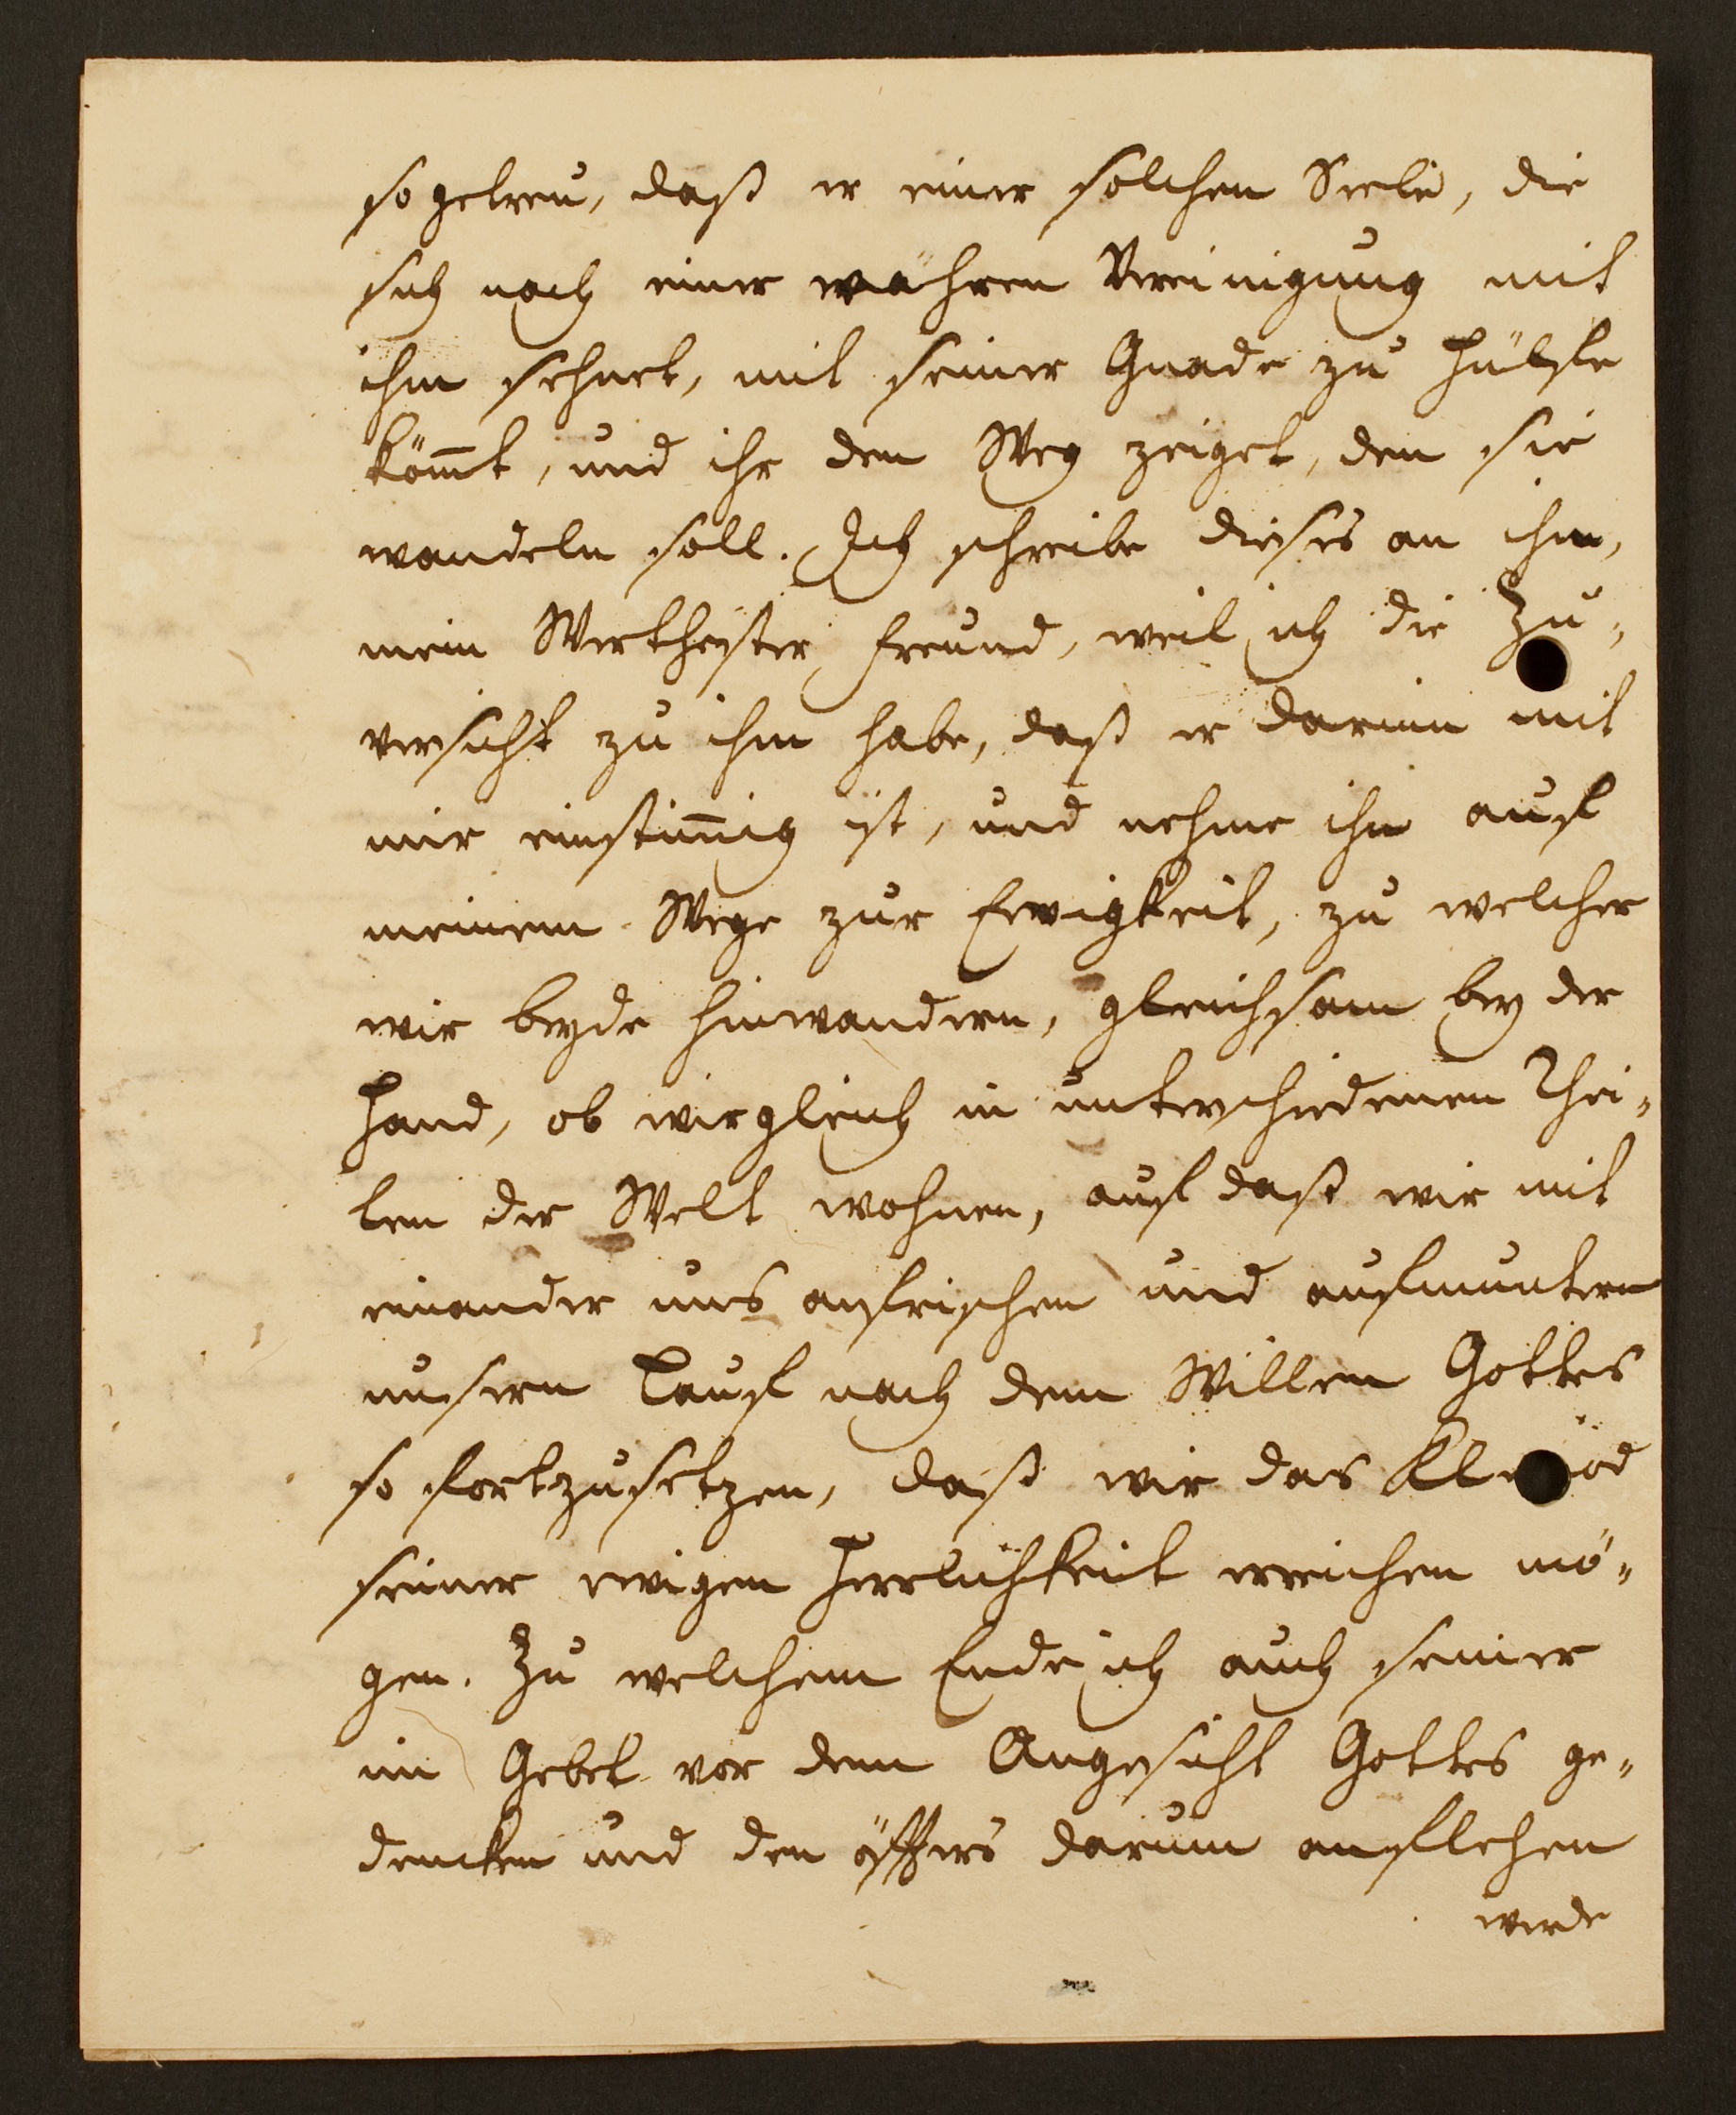 so getreu, daß er einer solchen Seele, die
sich nach einer wahren Vereinigung mit
ihm sehnet, mit seiner Gnade zu Hülffe
kom̄t, und ihr den Weg zeiget, den sie
wandeln soll. Ich schreibe dieses an ihm,
mein Werthester Freund, weil ich die Zu-
versicht zu ihm habe, daß er darinn mit
mir einstim̄ig ist, und nehme ihn auf
meinem Wege zur Ewigkeit, zu welcher
wir beyde hinwandern, gleichsam bey der
Hand, ob wir gleich in unterschiedenen Thei-
len der Welt wohnen, auf daß wir mit
einander uns anfrischen und aufmuntern
unsern Lauf nach dem Willen Gottes
so fortzusetzen, daß wir das Kleinod
seiner ewigen Herrlichkeit erreichen mö-
gen. Zu welchem Ende ich auch seiner
im Gebet vor dem Angesicht Gottes ge-
dencken und den öffters darum anflehen
werde